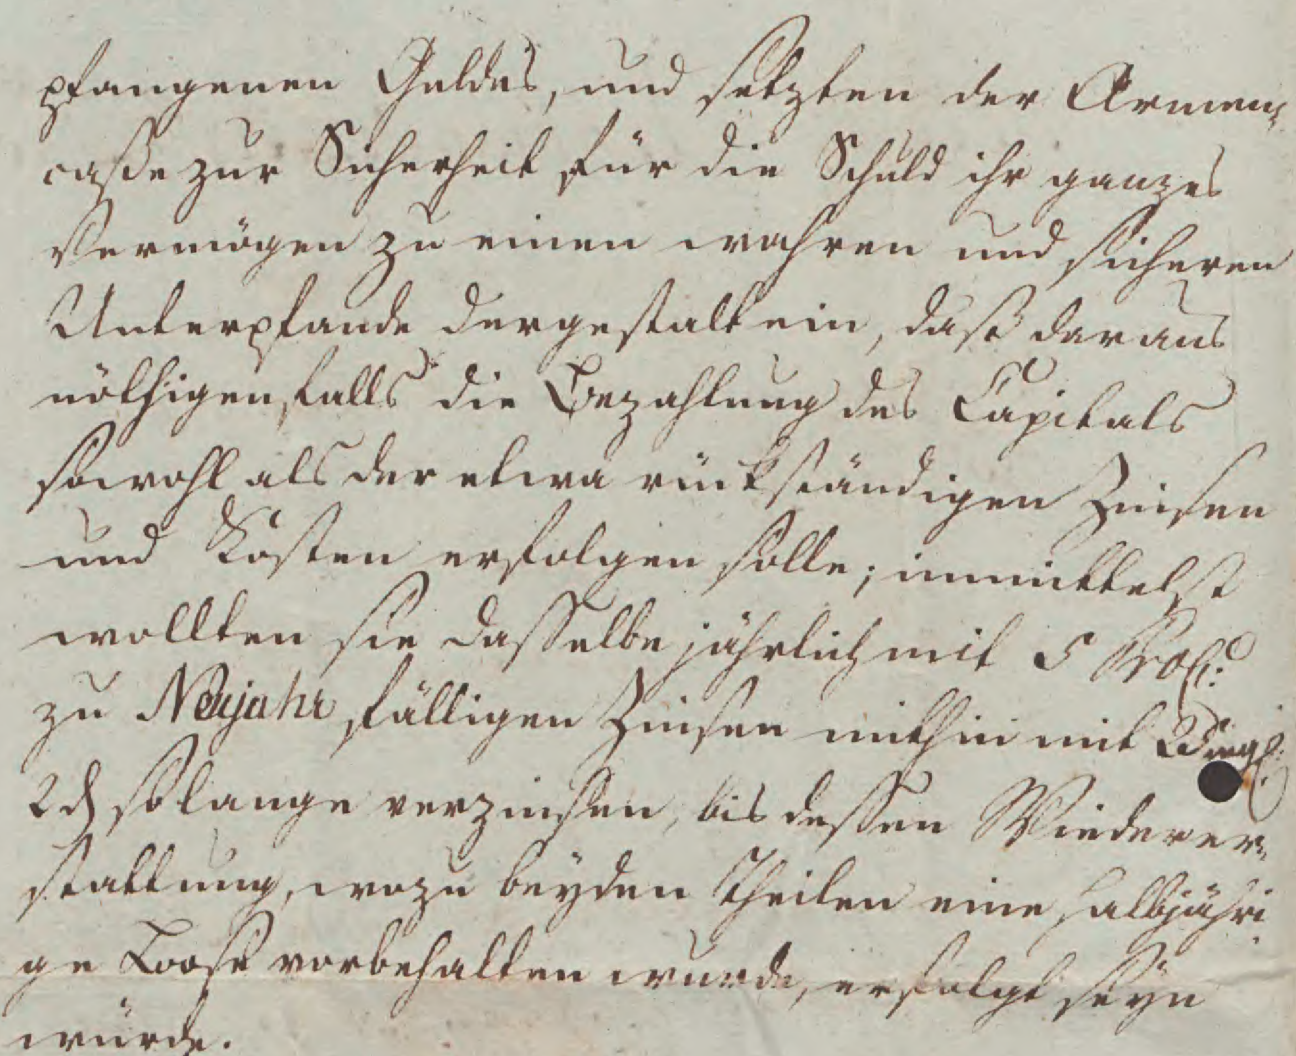 pfangenen Geldes, und setzten der Armen-
casse zur Sicherheit für die Schuld ihr ganzes
Vermögen zu einen wahren und sicheren
Unterpfande dergestalt ein, daß daraus
nöthigenfalls die Bezahlung des Capitals
sowohl als der etwa rückständigen Zinsen
und Kosten erfolgen solle; inmittelst
wollten sie dasselbe jährlich mit 5 Proc:
zu Neujahr fälligen Zinsen mithin mit
2 d solange verzinsen, bis dessen Wiederer-
stattung, wozu beyden Theilen eine halbjähri
ge Loose vorbehalten wurde, erfolgt seyn
würde.